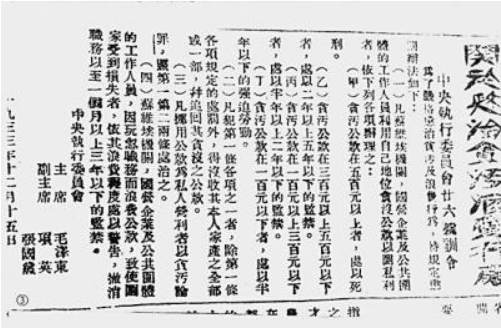 關於懲治貪污浪費行為
中央執行委員會廿六號訓令
為了嚴格懲治貪污及浪費行為，特規定懲
罰辦法如下：
（一）凡蘇維埃機關，國營企業及公共團
體的工作人員利用自己地位貪沒公款以圖私利
者，依下列各項辦理之：
（甲）貪污公款在五百元以上者，處以死
刑。
（乙）貪污公款在三百元以上五百元以下
者，處以二年以上五年以下的監禁。
（丙）貪污公款在一百元以上三百元以下
者，處以半年以上二年以下的監禁。
（丁）貪污公款在一百元以下者，處以半
年以下的强迫勞動。
（二）凡犯第一條各項之一者，除第一條
各項規定的處罰外，得沒收其本人家產之全部
或一部，并追回其貪沒之公款。
（三）凡挪用公款為私人營利者以貪污論
罪，照第一第二兩條處治之。
（四）蘇維埃機關，國營企業及公共團體
的工作人員，因玩忽職務而浪費公款，致使國
家受到損失者，依其浪費程度處以警告，撤消
職務以至一個月以上三年以下的監禁。
中央執行委員會
主席 毛澤東
副主席 項英
張國燾
一九三三年十二月十五日
③